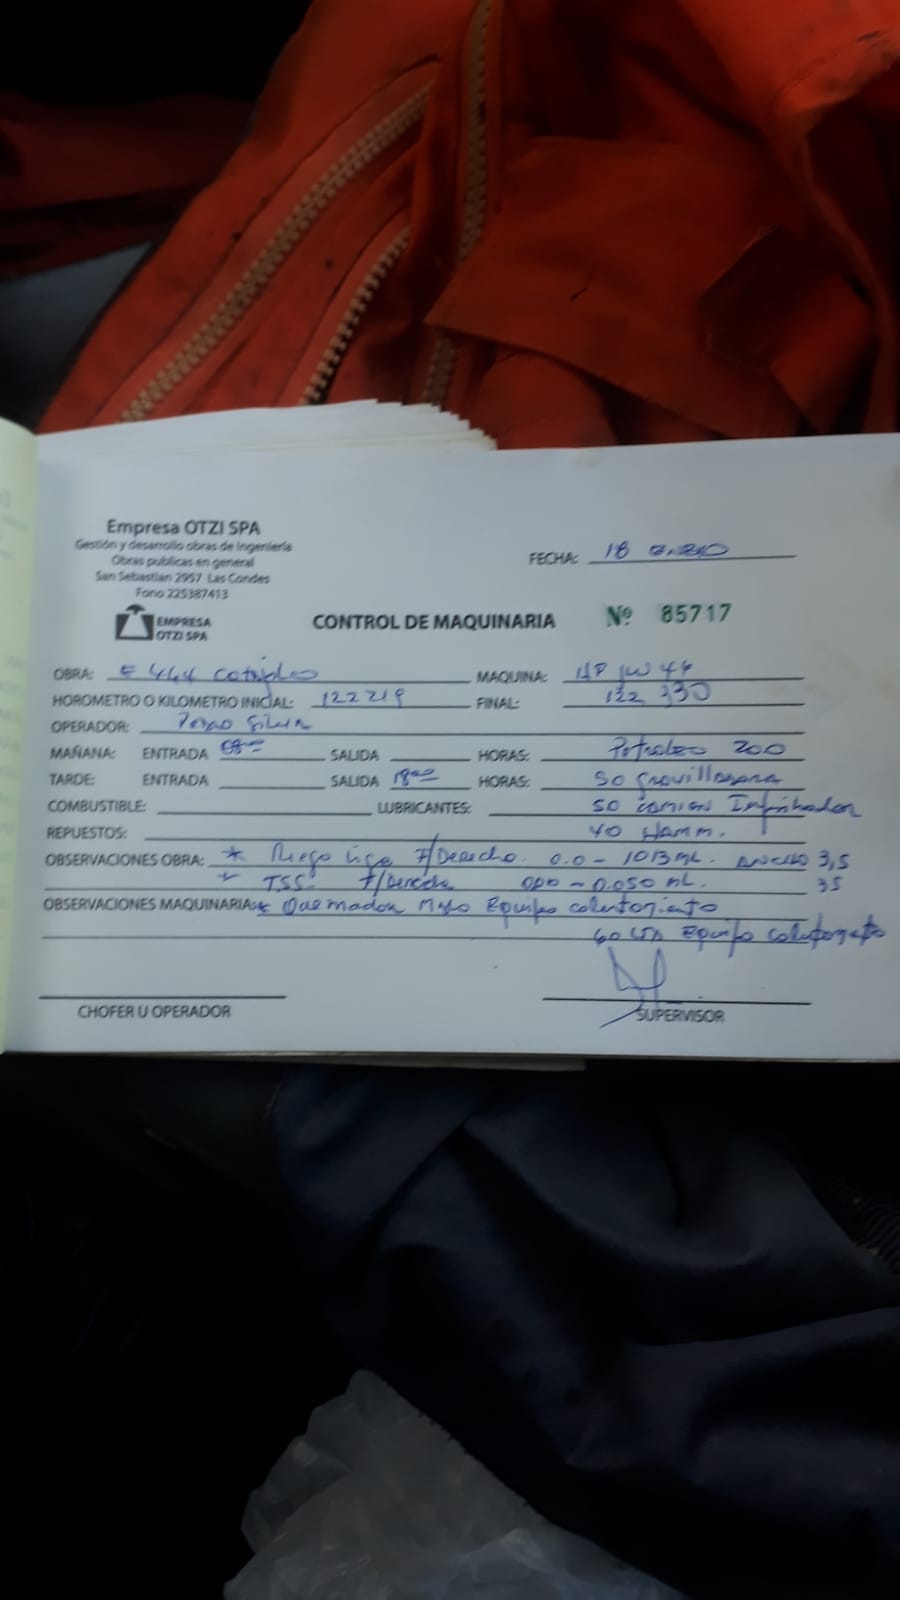 Empresa OTZI SPA
Gestión y desarrollo obras de Ingeniería
Obras publicas en general
San Sebastian 2957 Las Condes
Fono 225387413
EMPRESA
OTZI SPA
FECHA: 18 enero
CONTROL DE MAQUINARIA Nº 85717
OBRA: MAQUINA:
HOROMETRO O KILOMETRO INICIAL: 122219 FINAL: 122 330
OPERADOR: Silva
MAÑANA: ENTRADA 08:00 SALIDA HORAS: Petroleo 200
TARDE: ENTRADA SALIDA 18:00 HORAS: 50 Gravilladora
COMBUSTIBLE: LUBRICANTES: 50 camion Imprimador
REPUESTOS: 40 Hamm.
OBSERVACIONES OBRA: * Riego Liga F/Derecho. 0.0 - 1013 ML. ANCHO 3,5
* TSS F/Derecha 0.00 - 0.050 ML. 35
OBSERVACIONES MAQUINARIA: * Quemador Malo Equipo calentamiento
60 Equipo
CHOFER U OPERADOR
SUPERVISOR